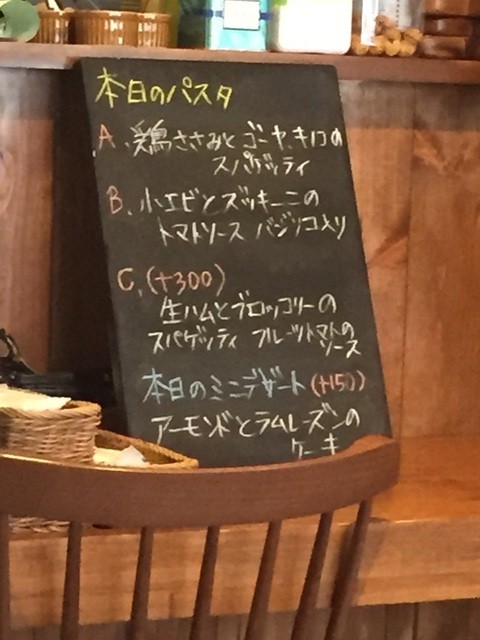 本日のパスタ
A. 鶏ささみとゴーヤ、キノコの
スパゲッティ
B. 小エビとズッキーニの
トマトソース バジリコ入り
C. (+300)
生ハムとブロッコリーの
スパゲッティ フルーツトマトの
ソース
本日のミニデザート (+150)
アーモンドとラムレーズンの
ケーキ